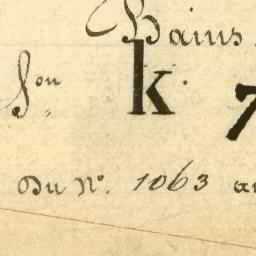 Bains.
Son k. 7
Du N°. 1063 au